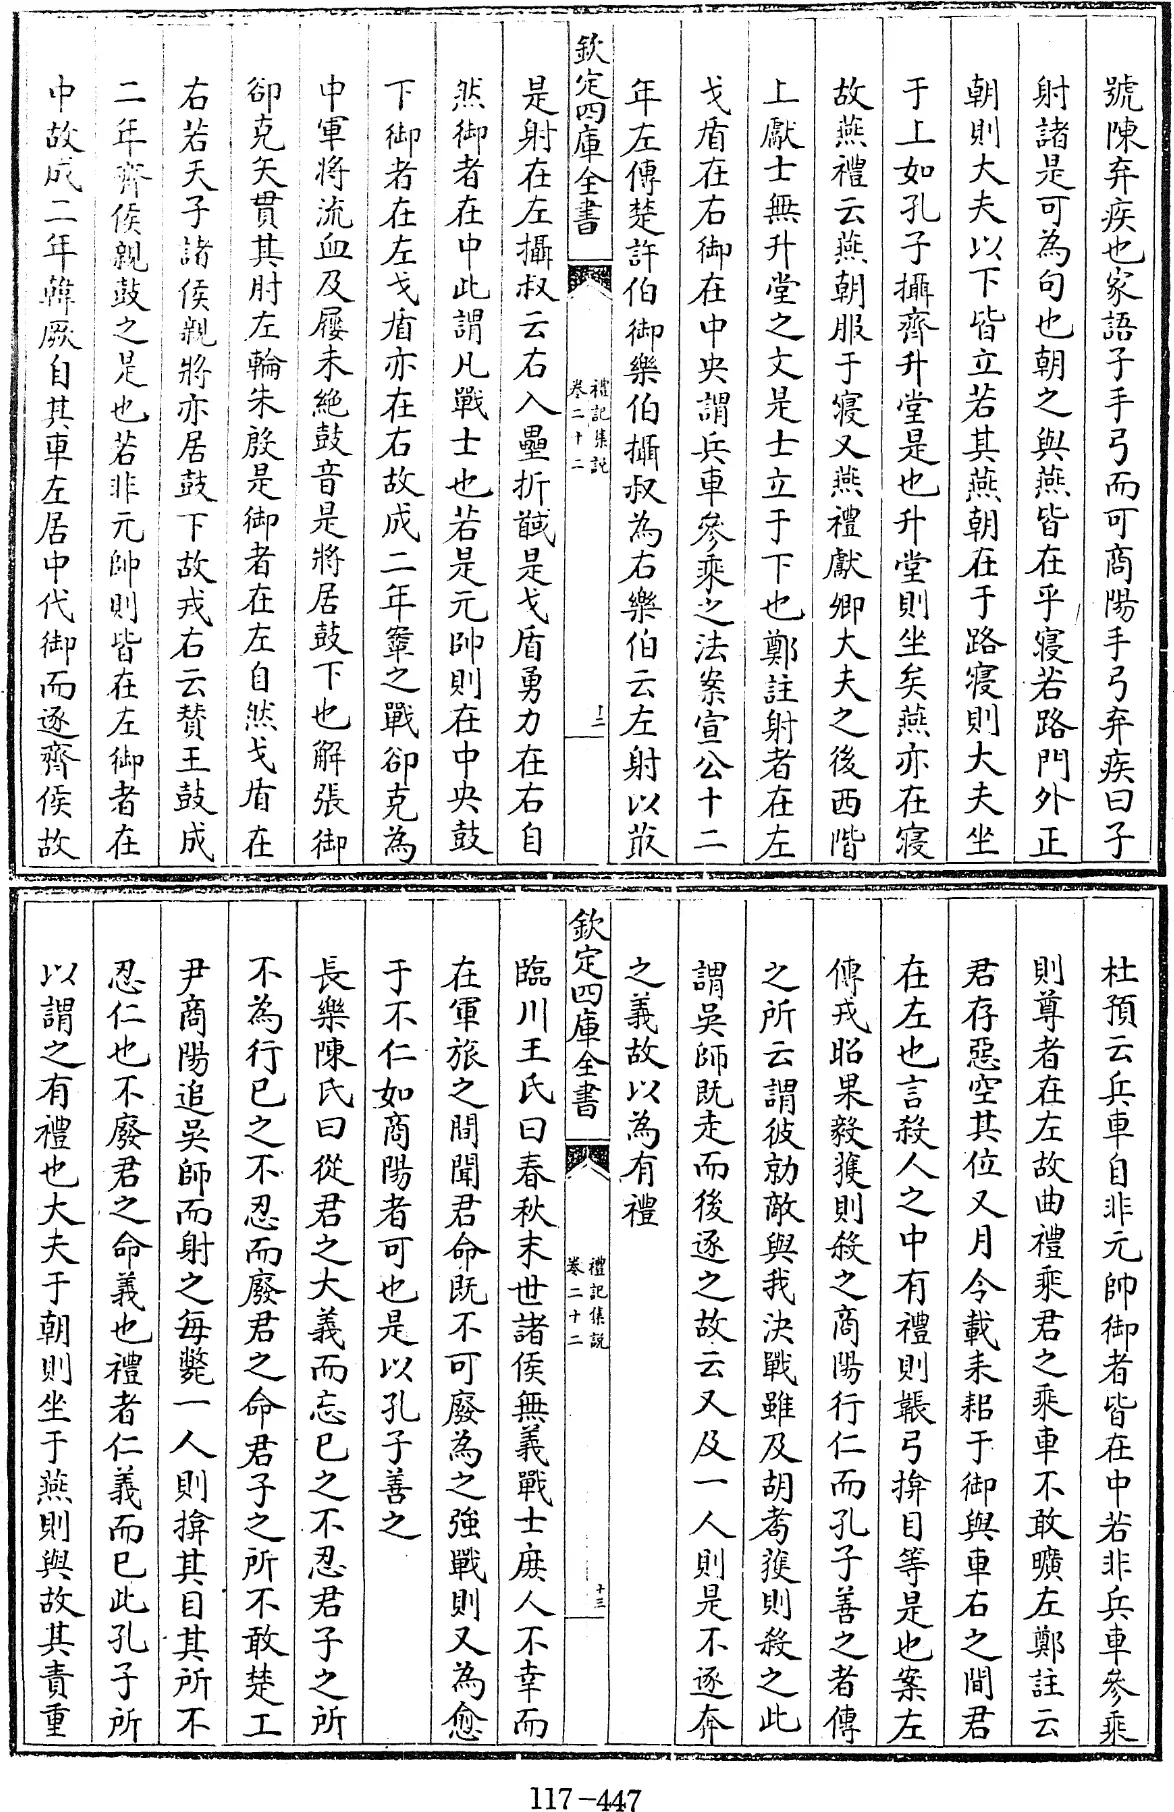 號陳弃疾也家語子手弓而可商陽手弓弃疾曰子
射諸是可為句也朝之與燕皆在乎寝若路門外正
朝則大夫以下皆立若其燕朝在于路寝則大夫坐
于上如孔子攝齊升堂是也升堂則坐矣燕亦在寝
故燕禮云燕朝服于寝又燕禮獻卿大夫之後西階
上獻士無升堂之文是士立于下也鄭註射者在左
戈盾在右御在中央謂兵車參乘之法案宣公十二
年左傳楚許伯御樂伯攝叔為右樂伯云左射以菆
欽定四庫全書
禮記集説
卷二十二
十二
是射在左攝叔云右入壘折馘是戈盾勇力在右自
然御者在中此謂凡戰士也若是元帥則在中央鼓
下御者在左戈盾亦在右故成二年鞌之戰卻克為
中軍將流血及屨未絶鼓音是將居鼓下也解張御
卻克矢貫其肘左輪朱殷是御者在左自然戈盾在
右若天子諸侯親將亦居鼓下故戎右云贊王鼓成
二年齊侯親鼓之是也若非元帥則皆在左御者在
中故成二年韓厥自其車左居中代御而逐齊侯故
杜預云兵車自非元帥御者皆在中若非兵車參乘
則尊者在左故曲禮乘君之乘車不敢曠左鄭註云
君存惡空其位又月令載耒耜于御與車右之間君
在左也言殺人之中有禮則韔弓揜目等是也案左
傳戎昭果毅獲則殺之商陽行仁而孔子善之者傳
之所云謂彼勍敵與我決戰雖及胡耇獲則殺之此
謂吳師既走而後逐之故云又及一人則是不逐奔
之義故以為有禮
欽定四庫全書
禮記集説
卷二十二
十三
臨川王氏曰春秋末世諸侯無義戰士庶人不幸而
在軍旅之間聞君命既不可廢為之強戰則又為愈
于不仁如商陽者可也是以孔子善之
長樂陳氏曰從君之大義而忘已之不忍君子之所
不為行已之不忍而廢君之命君子之所不敢楚工
尹商陽追吳師而射之每斃一人則揜其目其所不
忍仁也不廢君之命義也禮者仁義而已此孔子所
以謂之有禮也大夫于朝則坐于燕則與故其責重
117-447